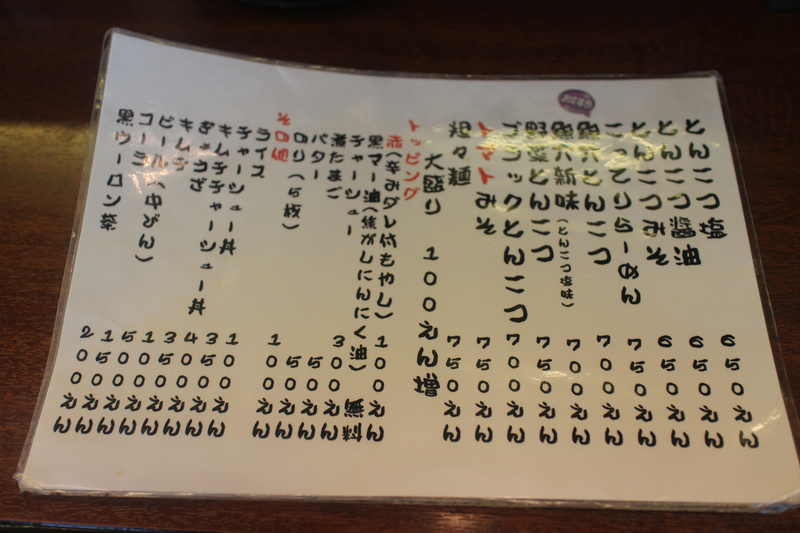 とんこつ塩 650えん
とんこつ醤油 650えん
とんこつみそ 650えん
こってりらーめん 750えん
とんこつ 700えん
新味(とんこつ塩味) 700えん
野菜とんこつ 750えん
ブラックとんこつ 700えん
トマトみそ 750えん
担々麺 750えん
大盛り 100えん増
トッピング
赤(辛みダレ付もやし) 100えん
黒マー油(焦がしにんにく油) 無料
チャーシュー 300えん
煮たまご 50えん
バター 50えん
のり(5枚) 100えん
その他
ライス 100えん
チャーシュー丼 350えん
キムチチャーシュー丼 400えん
ぎょうざ 350えん
キムチ 150えん
ビール(中びん) 500えん
コーラ 150えん
黒ウーロン茶 200えん